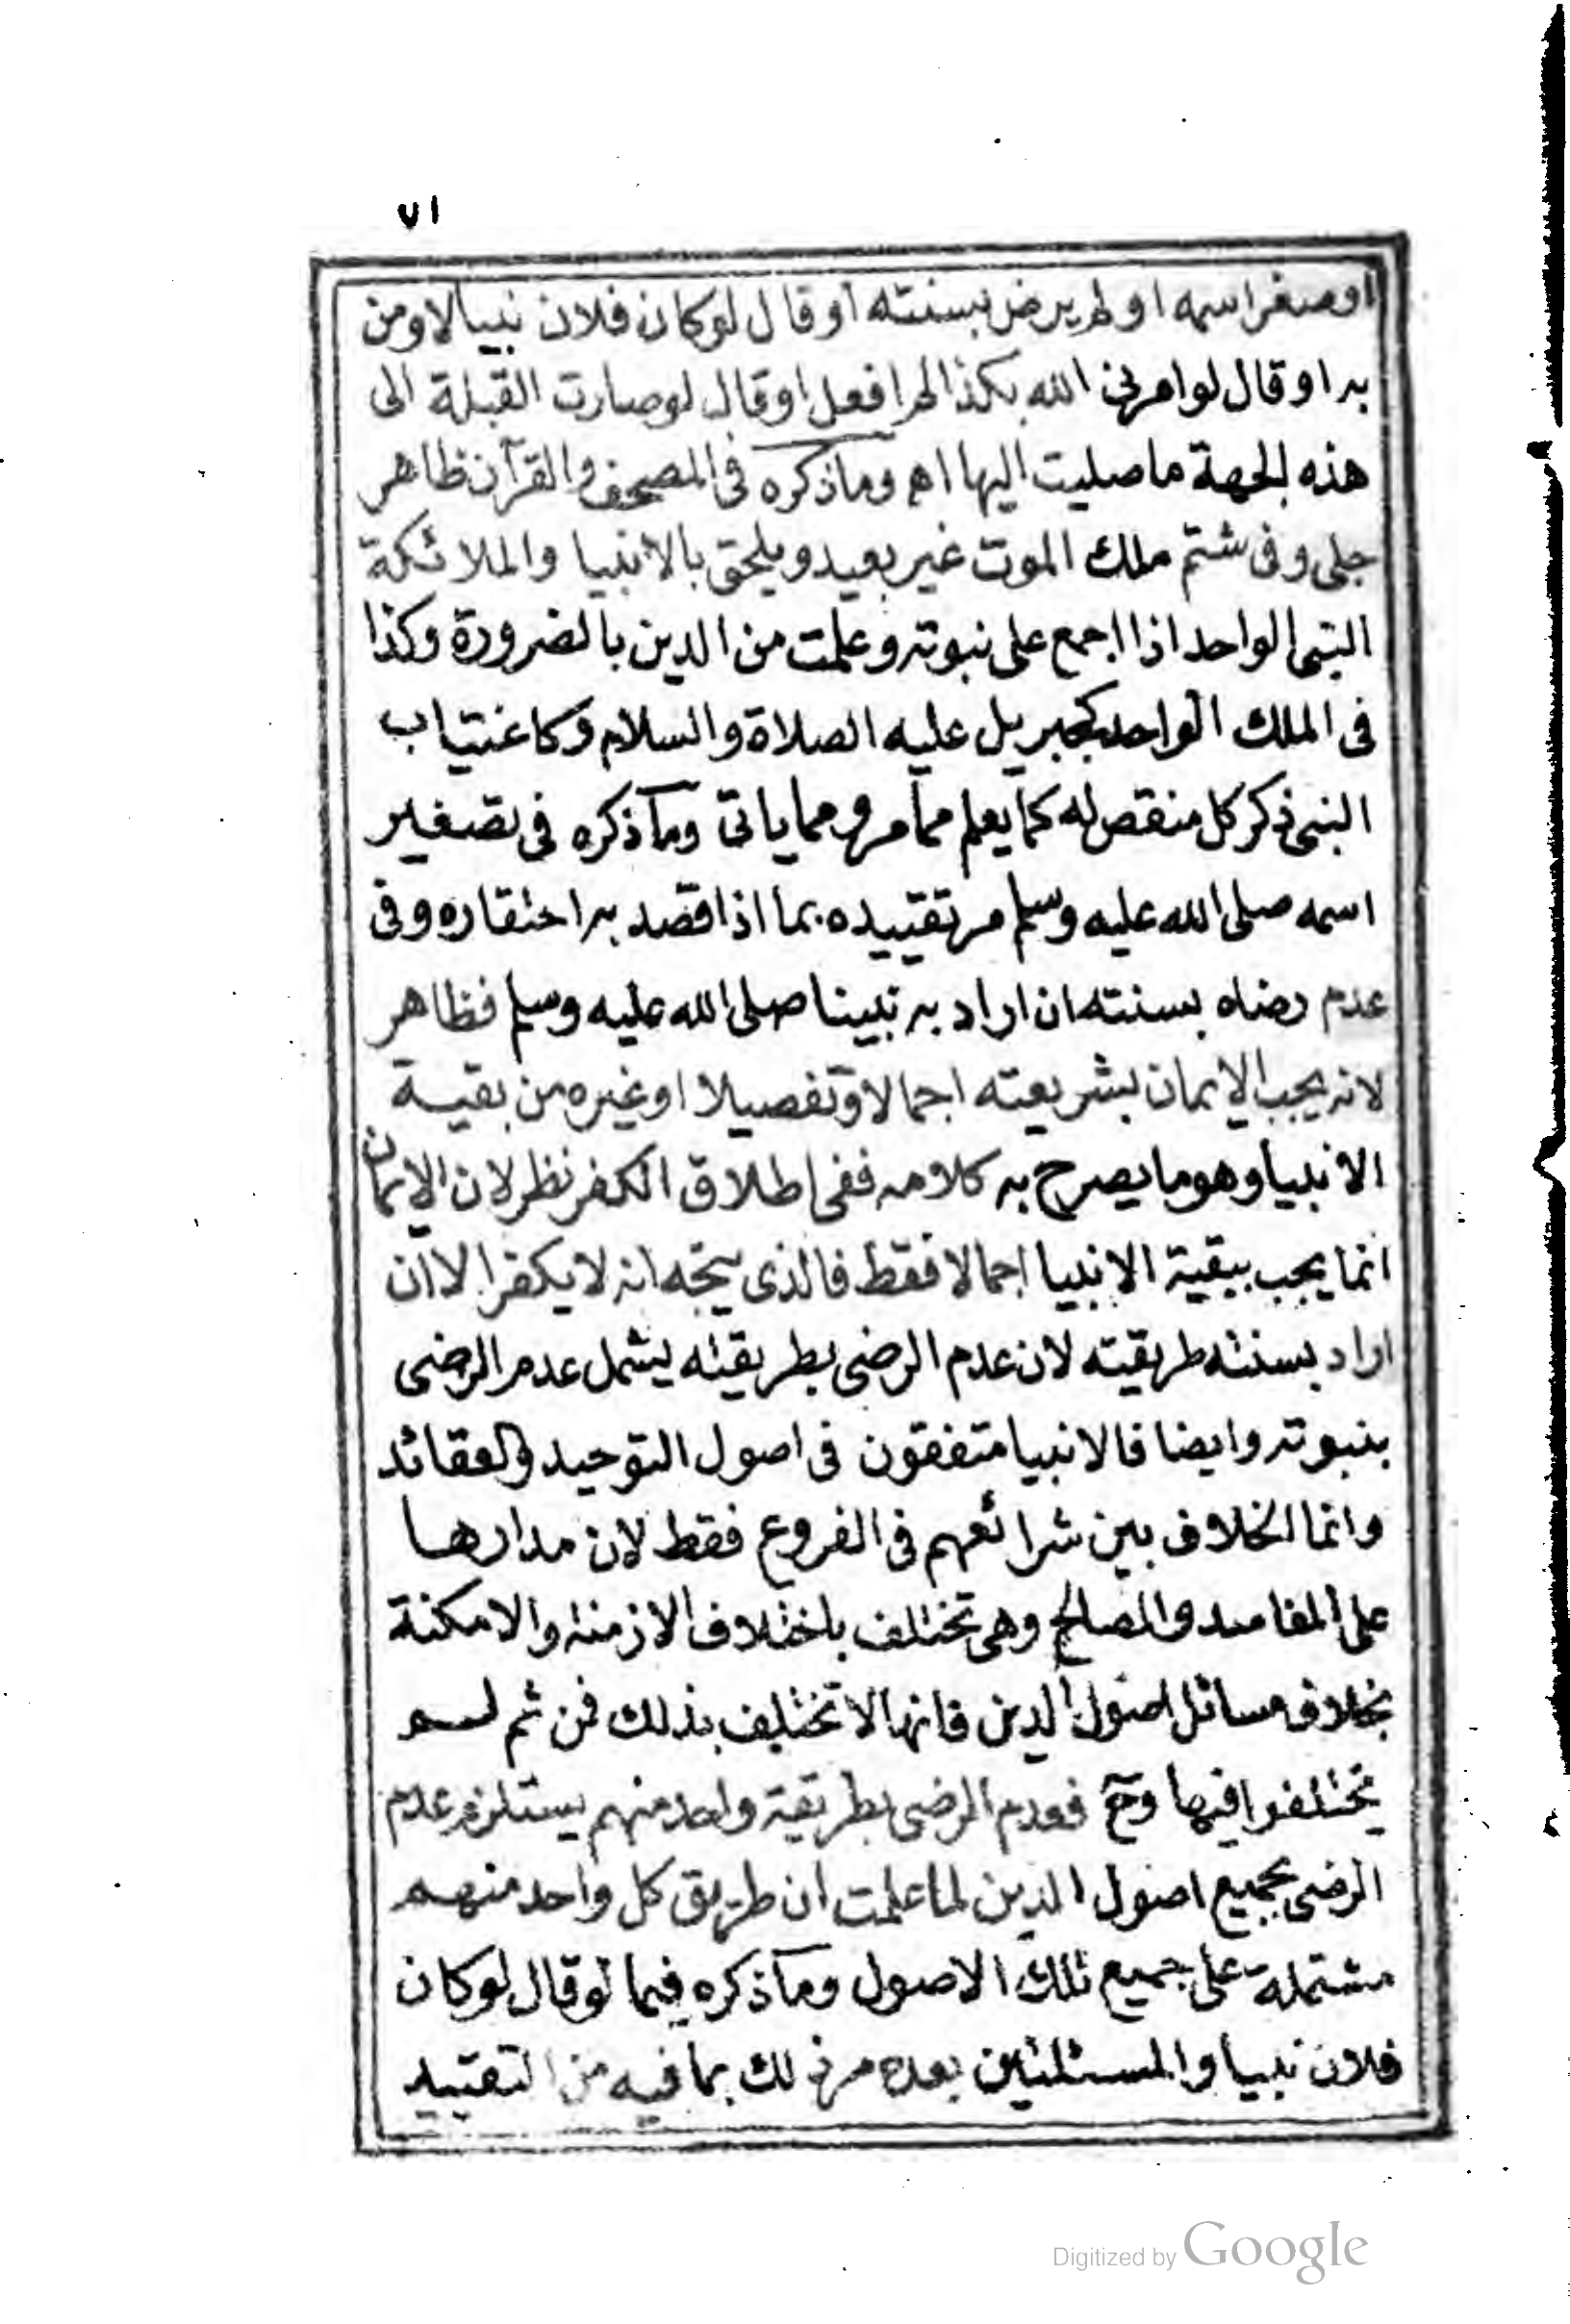 ٧١
او صغر اسمه او لم يرض بسنته او قال لو كان فلان نبيا لا ومن
به او قال لو امرنى الله بكذا لم افعل او قال لو صارت القبلة الى
هذه الجهة ما صليت اليها اهـ وما ذكره فى المصحف والقرآن ظاهر
جلى وفى شتم ملك الموت غير بعيد ويلحق بالانبيا والملائكة
النبى الواحد اذا اجمع على نبوته وعلمت من الدين بالضرورة وكذا
فى الملك الواحد كجبريل عليه الصلاة والسلام وكاغتياب
النبى ذكر كل منقص له كما يعلم مما مر ومما ياتى وما ذكره فى تصغير
اسمه صلى الله عليه وسلم مر تقييده بما اذا قصد به احتقاره وفى
عدم رضاه بسنته ان اراد به نبينا صلى الله عليه وسلم فظاهر
لانه يجب الايمان بشريعته اجمالا وتفصيلا او غيره من بقية
الانبيا وهو ما يصرح به كلامه ففى اطلاق الكفر نظر لان الايمان
انما يجب ببقية الانبيا اجمالا فقط فالذى يتجه انه لا يكفر الا ان
اراد بسنته طريقته لان عدم الرضى بطريقته يشمل عدم الرضى
بنبوته وايضا فالانبيا متفقون فى اصول التوحيد والعقائد
وانما الخلاف بين شرائعهم فى الفروع فقط لان مدارها
على المفاسد والمصالح وهى تختلف باختلاف الازمنة والامكنة
بخلاف مسائل اصول الدين فانها لا تختلف بذلك فمن ثم لم
يختلفوا فيها وح فعدم الرضى بطريقة واحد منهم يستلزم عدم
الرضى بجميع اصول الدين لما علمت ان طريق كل واحد منهم
مشتملة على جميع تلك الاصول وما ذكره فيما لو قال لو كان
فلان نبيا والمسئلتين بعده مر ذلك بما فيه من التقييد
Digitized by Google